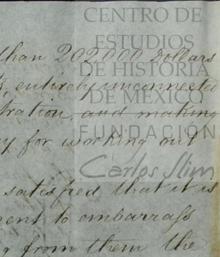 CENTRO DE
ESTUDIOS
DE HISTORIA
DE MÉXICO
FUNDACIÓN
Carlos Slim
than 202000 Dollars
entirely unconnected
tration, and making
y for working out
satisfied that it is
ment to embarrass
from them the